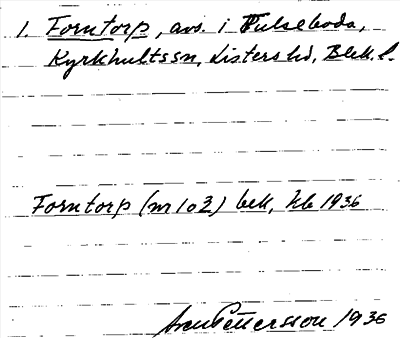 1. Forntorp, avs. i Fulseboda,
Kyrkhultssn, Listers hd, Blek. l.
Forntorp (nr 102) bek, kb 1936
Pettersson 1936